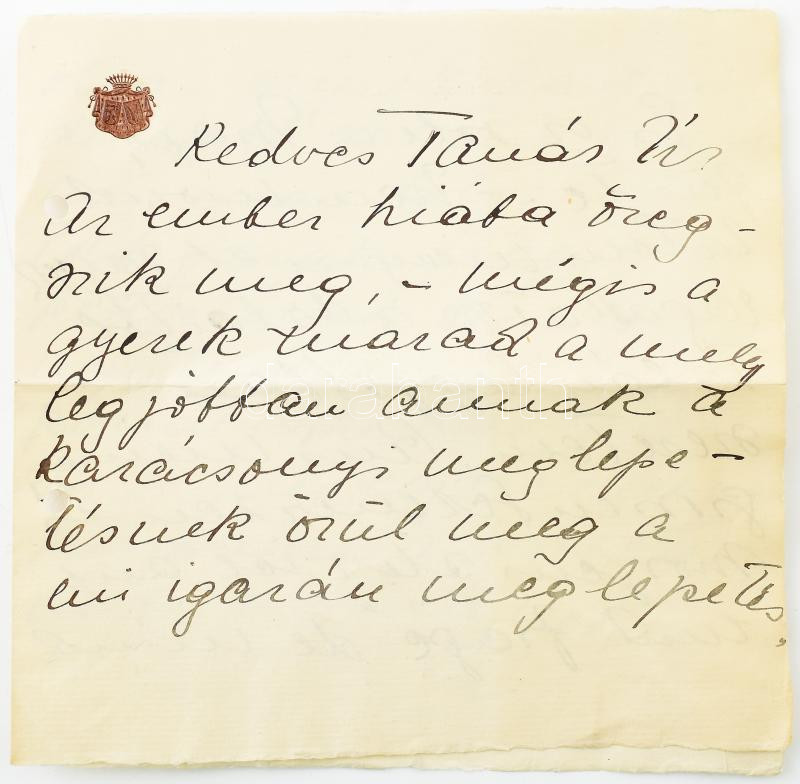 Kedves Tanár Úr
Az ember hiába öreg-
szik meg, - mégis a
gyerek marad a mely
legjobban annak a
karácsonyi meglepe-
tésnek örül meg a
mi igazán meglepetés,
darabanth